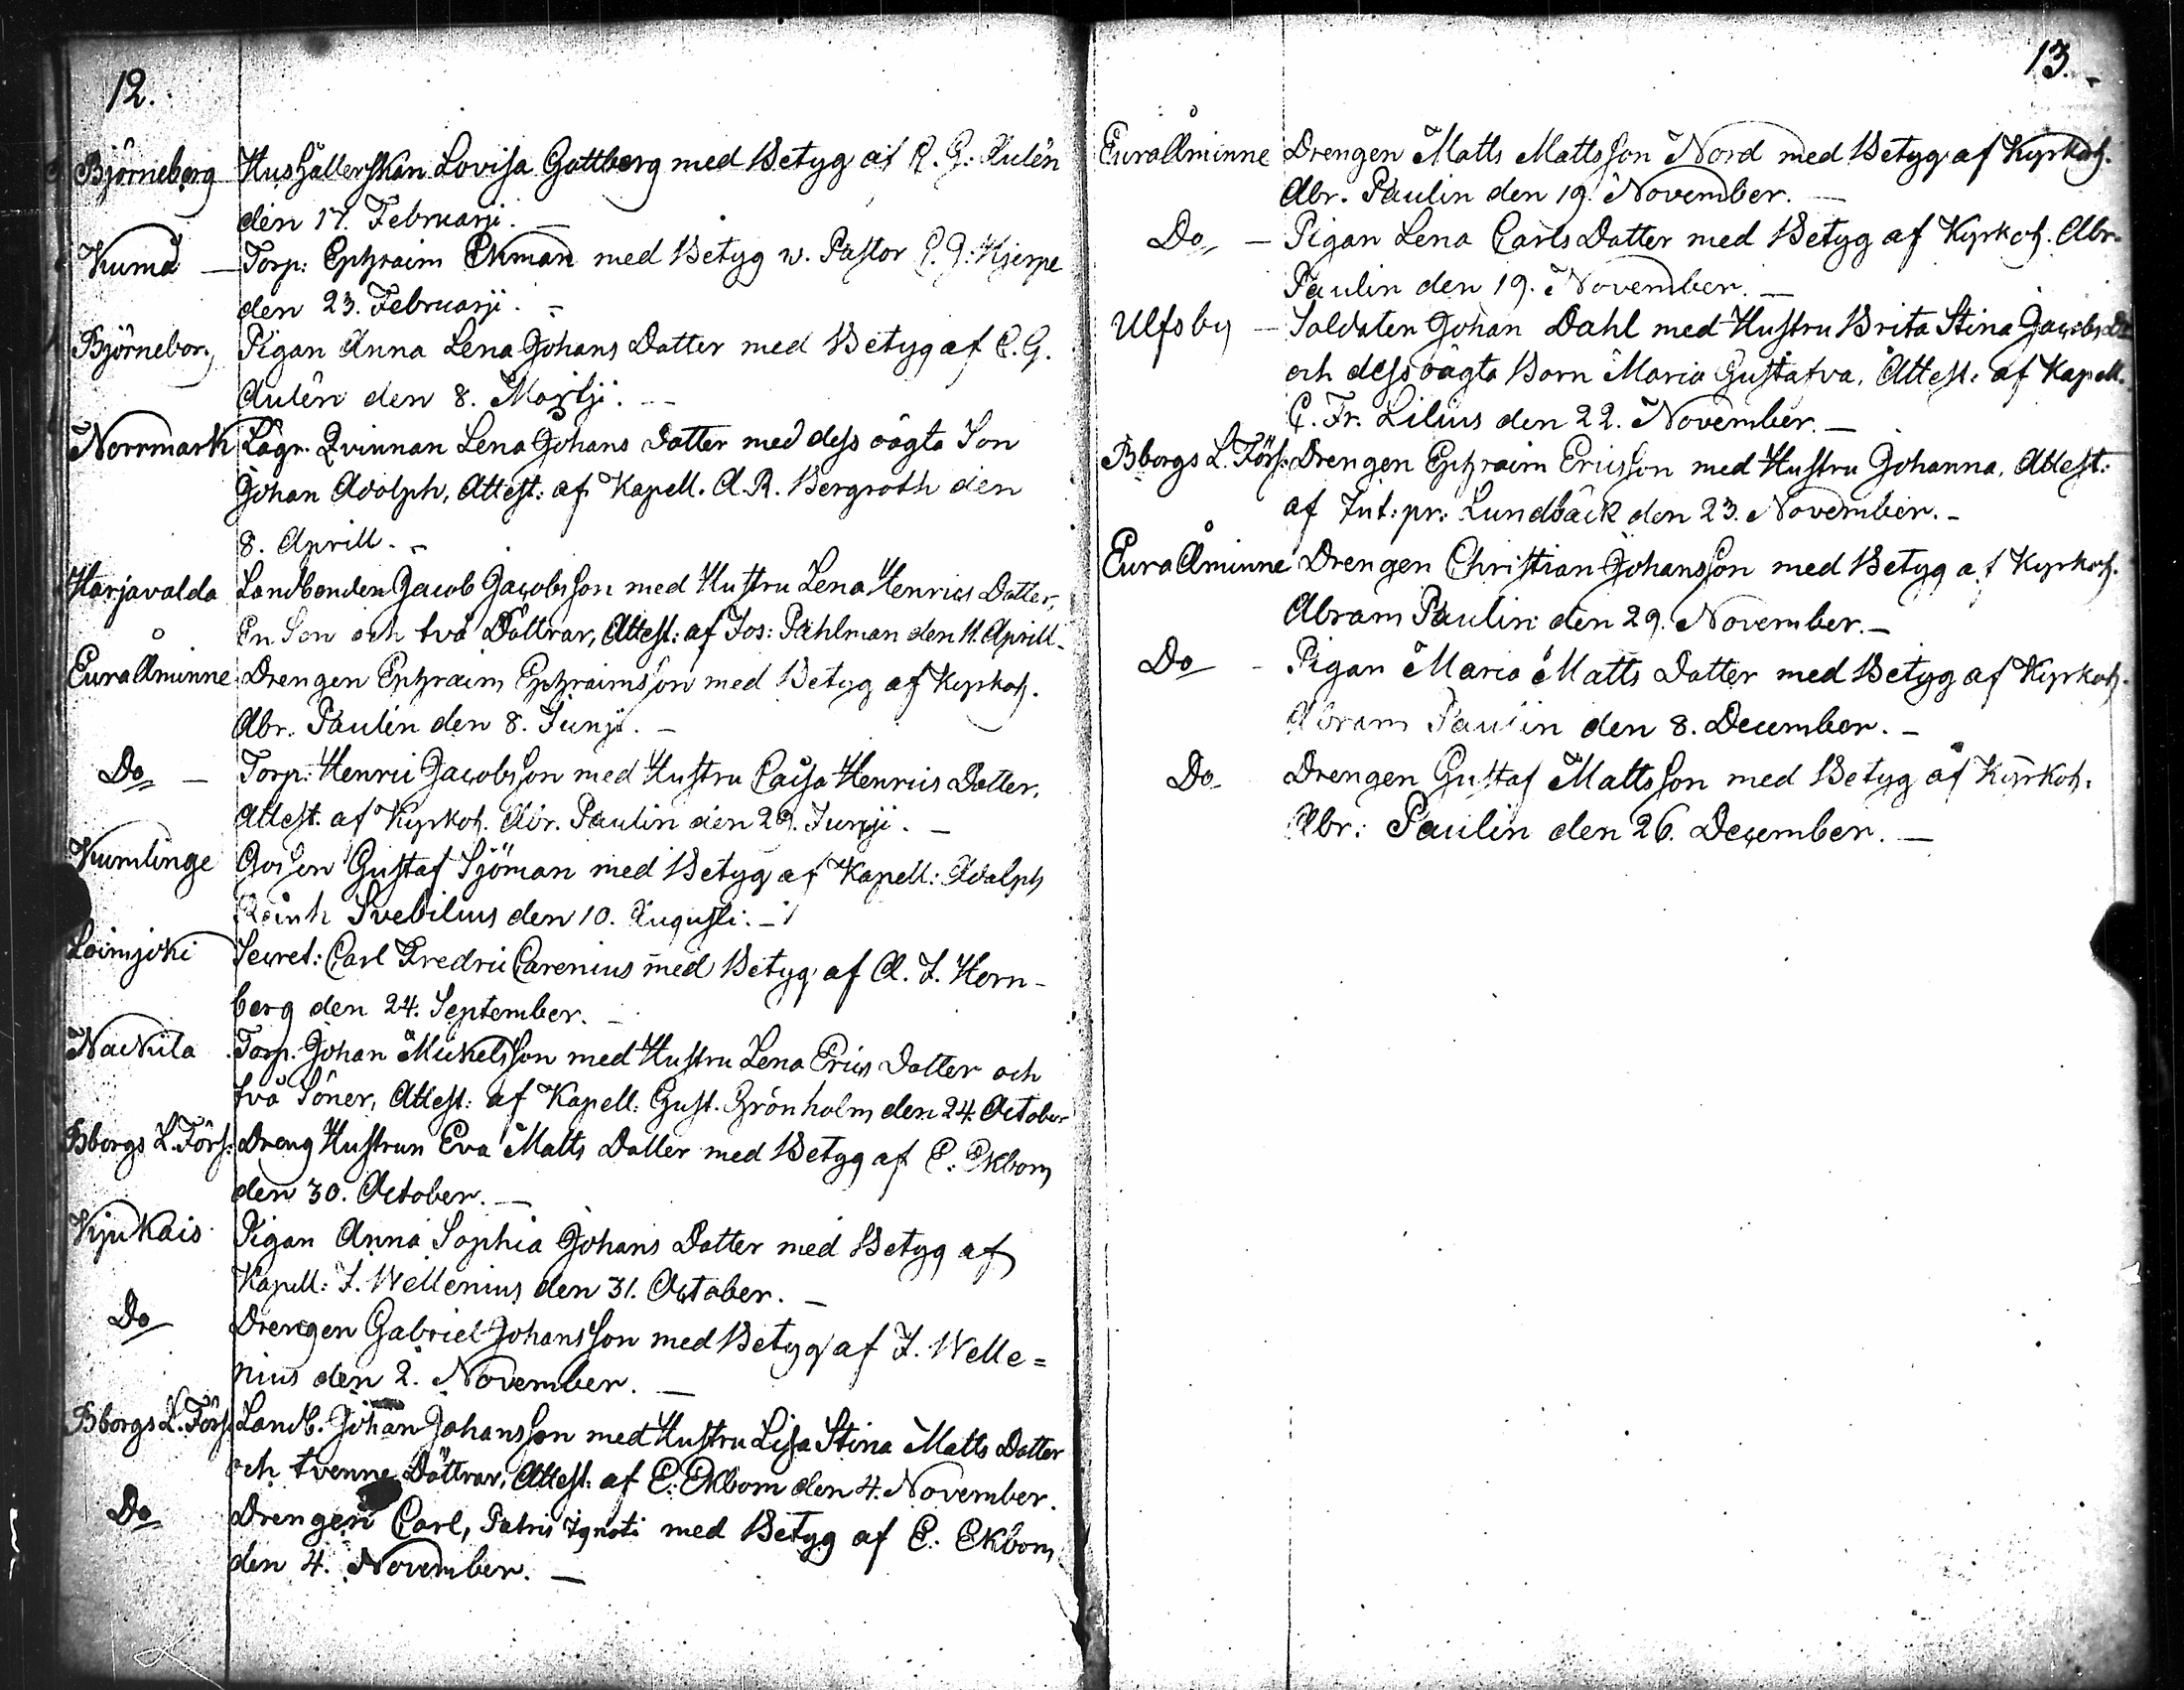 12.
Björneborg Hushållerskan Lovisa Gottberg med Betyg af C. G. Aulén
den 17. Februarji. —
Kumo — Torp: Ephraim Ekman med Betyg v. Pastor C. G. Hjerpe
den 23. Februarji. —
Björneborg Pigan Anna Lena Johans Dotter med Betyg af C. G.
Aulén den 8. Martji. —
Norrmark Lägr. Qvinnan Lena Johans Dotter med dess oägta Son
Johan Adolph, Attest: af Kapell. A. R. Bergroth den
8. Aprill. —
Harjavalda Landbonden Jacob Jacobsson med Hustru Lena Henrics Dotter,
En Son och två Döttrar, Attest: af Jos: Påhlman den 11. Aprill.
Euraåminne Drengen Ephraim Ephraimsson med Betyg af Kyrkoh.
Abr. Paulin den 8. Junji. —
Do — Torp: Henric Jacobsson med Hustru Caisa Henrics Dotter,
Attest. af Kyrkoh. Abr. Paulin den 29. Junji. —
Kumlinge Gossen Gustaf Sjöman med Betyg af Kapell: Adolph
Reinh Svebilius den 10. Augusti. —
Loimjoki Secret: Carl Fredric Carenius med Betyg af A. J. Horn-
berg den 24. September. —
Nackila Torp. Johan Mickelsson med Hustru Lena Erics Dotter och
två Söner, Attest: af Kapell: Gust. Grönholm den 24. October
Bborgs L. Förs: Dreng Hustrun Eva Matts Dotter med Betyg af E: Ekbom
den 30. October. —
Kjukais Pigan Anna Sophia Johans Dotter med Betyg af
Kapell: J. Wellenius den 31. October. —
Do Drengen Gabriel Johansson med Betyg af J. Welle=
nius den 2. November. —
Bborgs L. Förs: Landb. Johan Johansson med Hustru Lisa Stina Matts Dotter
och tvenne Döttrar, Attest. af E: Ekbom den 4. November.
Do Drengen Carl, Patris Ignoti med Betyg af E: Ekbom
den 4. November. —
13.
Euraåminne Drengen Matts Mattsson Nord med Betyg af Kyrkoh.
Abr. Paulin den 19. November. —
Do — Pigan Lena Carls Dotter med Betyg af Kyrkoh. Abr.
Paulin den 19. November. —
Ulfsby — Soldaten Johan Dahl med Hustru Brita Stina Jacobs Dr
och dess oägta Barn Maria Gustafva, Attest: af Kapell.
C. Fr. Lilius den 22. November. —
Bborgs L. Förs: Drengen Ephraim Ericsson med Hustru Johanna, Attest:
af Int: pr: Lundbäck den 23. November. —
Euraåminne Drengen Christian Johansson med Betyg af Kyrkoh.
Abram Paulin den 29. November. —
Do — Pigan Maria Matts Dotter med Betyg af Kyrkoh.
Abram Paulin den 8. December. —
Do Drengen Gustaf Mattsson med Betyg af Kyrkoh.
Abr: Paulin den 26. December. —